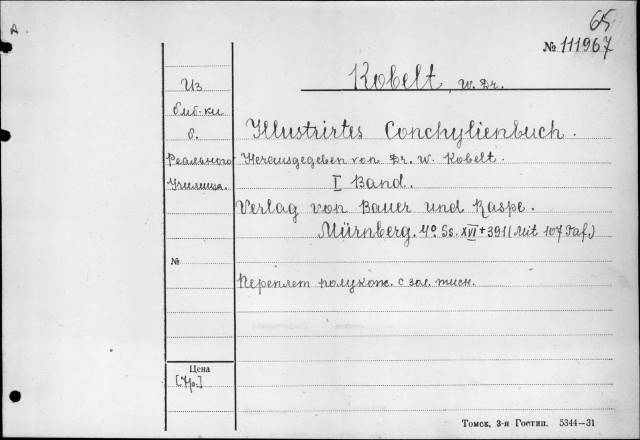 А
65
№ 111967
Kobelt, W. Dr.
Из
биб-ки
б.
Реального
Училища.
Illustrirtes Conchylienbuch.
Herausgegeben von Dr. W. Kobelt.
I Band.
Verlag von Bauer und Raspe.
Nürnberg. 4º Ss. XVI + 391 (Mit 107 Taf.)
№
Переплет полукож. с зол. тисн.
Цена
Томск, 3-я Гостип. 5344—31